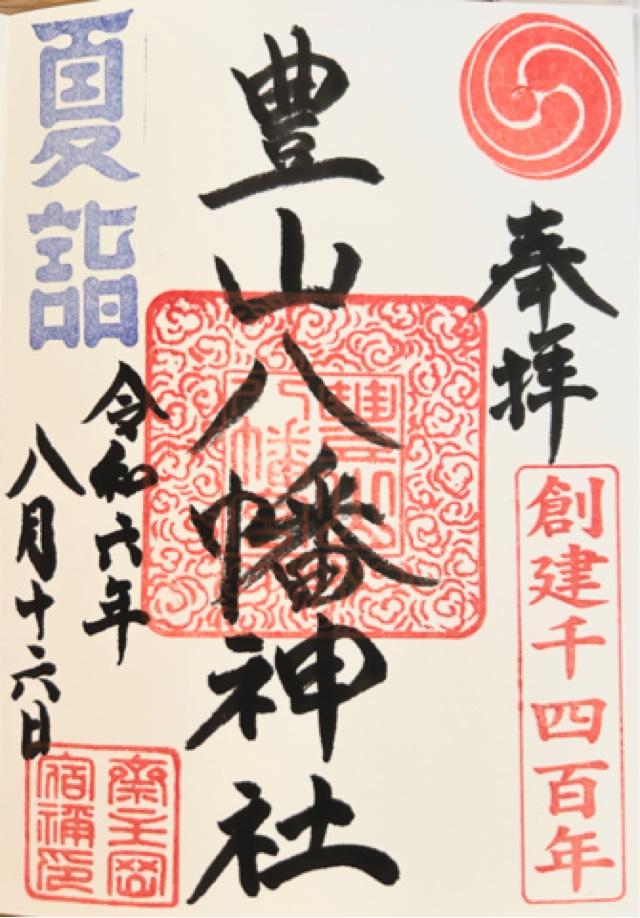 奉拝
創建千四百年
豊山八幡神社
豊山八幡
夏詣
令和六年
八月十六日